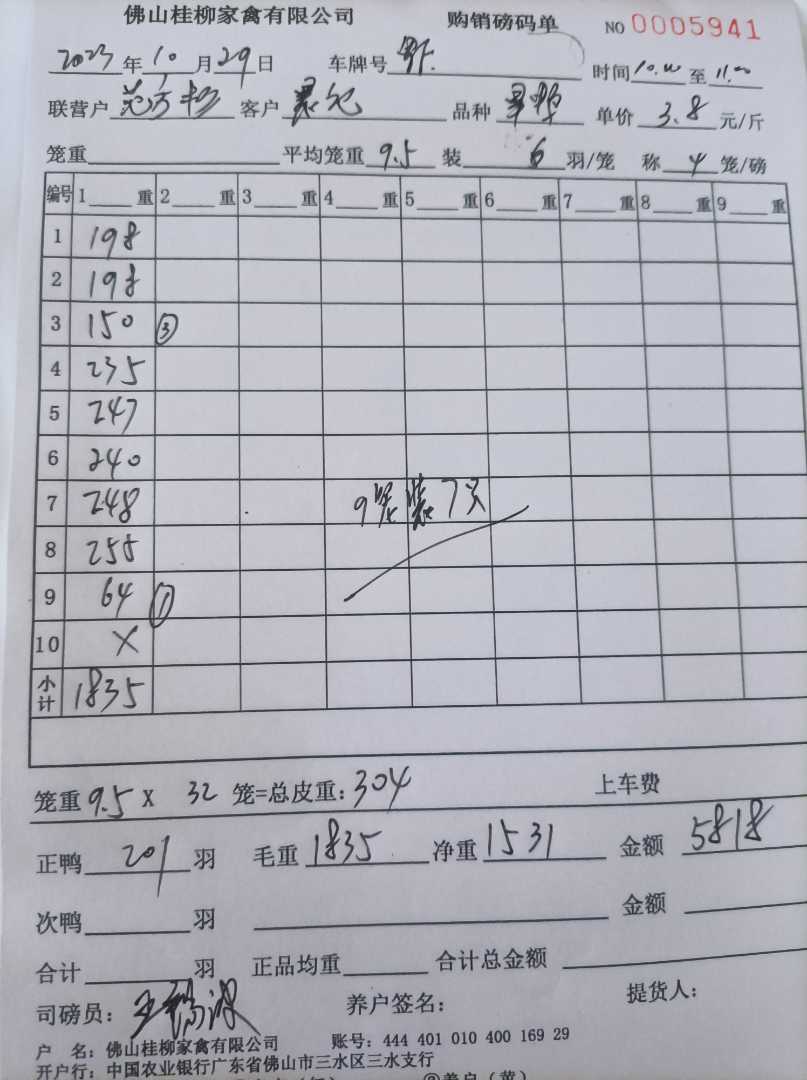 佛山桂柳家禽有限公司 购销磅码单 NO 0005941
2023年10月29日 车牌号 时间10.00至11.00
联营户 客户 品种 单价3.8元/斤
笼重 平均笼重9.5 装6羽/笼 称4笼/磅
编号 1 重 2 重 3 重 4 重 5 重 6 重 7 重 8 重 9 重
1 198
2 198
3 150 ③
4 235
5 247
6 240
7 248 9笼装7只
8 255
9 64 ①
10 ×
小计 1835
笼重9.5 X 32 笼=总皮重:304 上车费
正鸭201羽 毛重1835 净重1531 金额5818
次鸭 羽 金额
合计 羽 正品均重 合计总金额
司磅员: 养户签名: 提货人:
户 名:佛山桂柳家禽有限公司 账号:444 401 010 400 169 29
开户行:中国农业银行广东省佛山市三水区三水支行